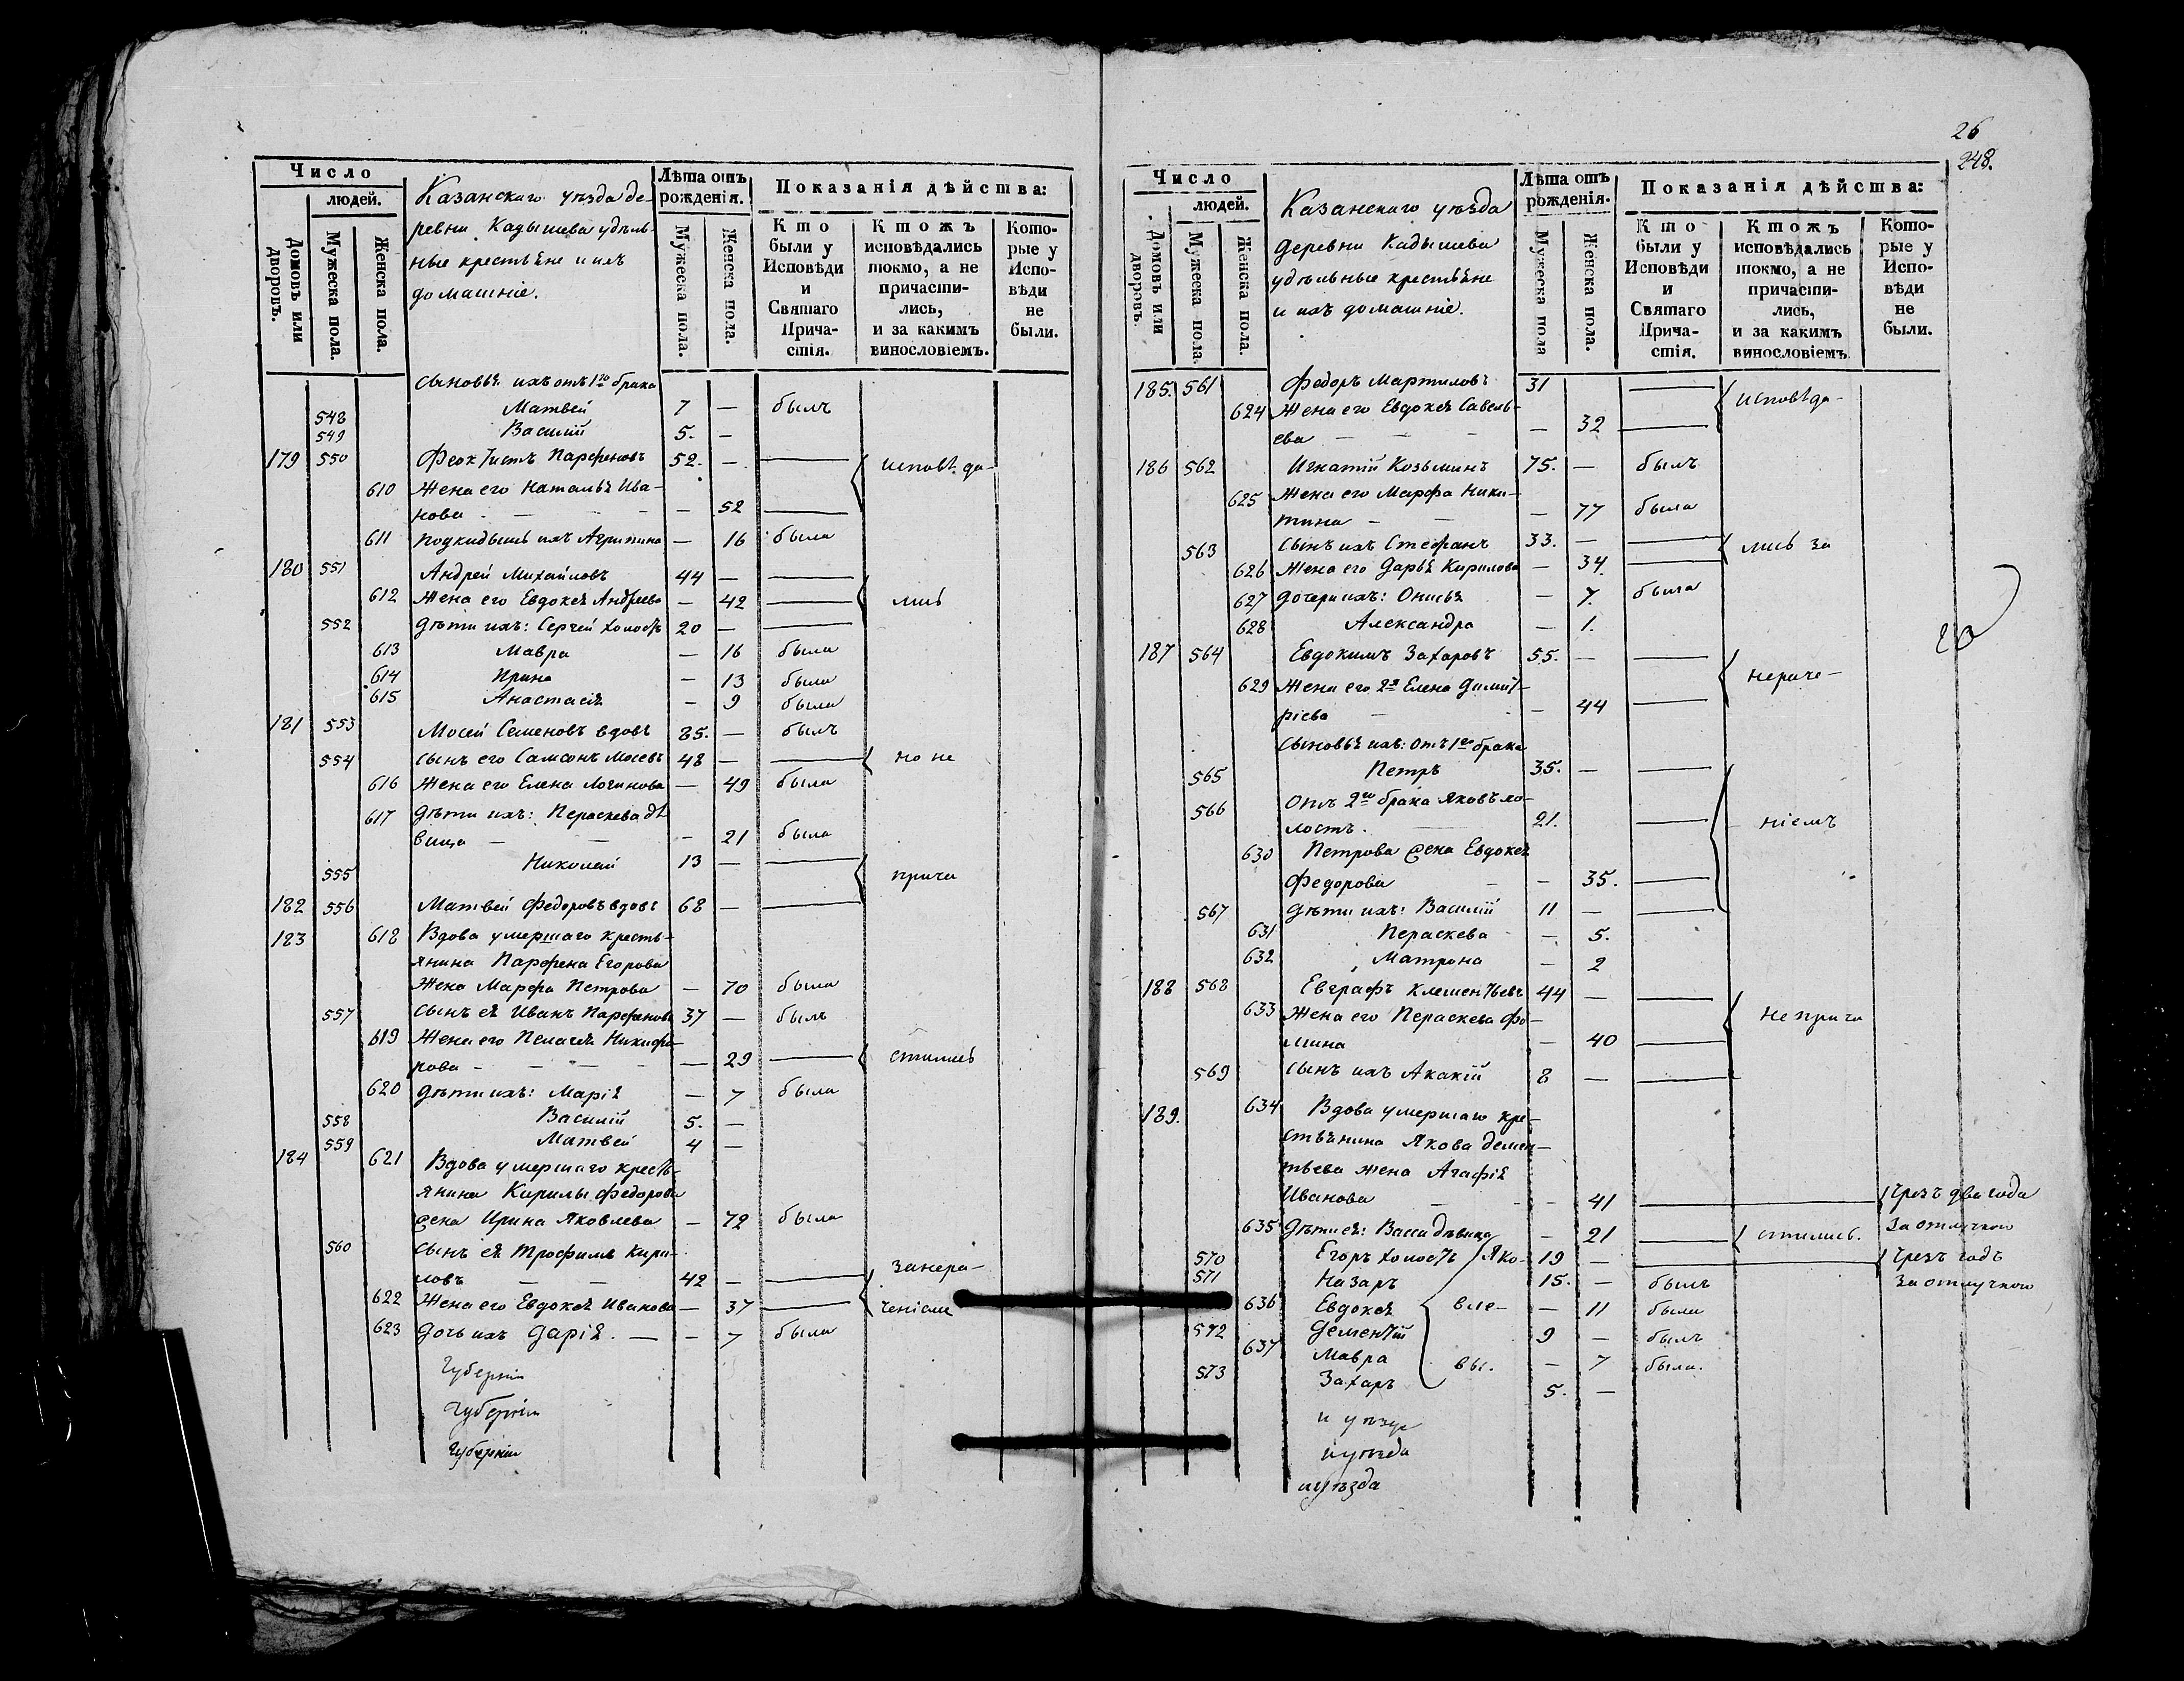 Число
людей.
Домовъ или дворовъ.
Мужеска пола.
Женска пола.
Казанскаго уѣзда де-
ревни Кадышева удѣль-
ные крестьяне и ихъ
домашніе.
Лѣта отъ рожденія.
Мужеска пола.
Женска пола.
Показанія дѣйства:
Кто были у Исповѣди и Святаго Прича-стія.
Ктожъ исповѣдались токмо, а не причасти-лись, и за какимъ винословіемъ.
Кото-рые у Испо-вѣди не были.
сыновья ихъ отъ 1го брака
548 Матвей 7 — былъ
549 Василій 5. —
179 550 Феоктистъ Парфеновъ 52. — исповѣда-
610 Жена его Наталья Ива-
нова — — 52
611 подкидышь ихъ Агрипина — 16 была
180 551 Андрей Михайловъ 44 —
612 Жена его Евдокея Андреева — 42 лись
552 Дѣти ихъ: Сергей холостъ 20 —
613 Мавра — 16 была
614 Ирина — 13 была
615 Анастасія — 9 была
181 553 Мосей Семеновъ вдовъ 85. — былъ
554 сынъ его Самсонъ Мосевъ 48 — но не
616 Жена его Елена Логинова — 49 была
617 Дѣти ихъ: Пераскева дѣ
вица — — 21 была
555 Николай 13 — прича
182 556 Матвей Федоровъ вдовъ 68 —
183 618 Вдова умершаго кресть-
янина Парфена Егорова
Жена Марфа Петрова — 70 была
557 Сынъ ея Иванъ Парфеновъ 37 — былъ
619 Жена его Пелагея Никифо-
рова — — 29 стились
620 Дѣти ихъ: Марія — 7 была
558 Василій 5. —
559 Матвей 4 —
184 621 Вдова умершаго кресть-
янина Кирилы Федорова
жена Ирина Яковлева — 72 была
560 Сынъ ея Трофимъ Кири-
ловъ — 42 — занера-
622 Жена его Евдокея Иванова — 37 ченіем
623 Дочь ихъ Дарія. — — 7 была
Губерніи
Губерніи
Губерніи
26
248.
Число
людей.
Домовъ или дворовъ.
Мужеска пола.
Женска пола.
Казанскаго уѣзда
деревни Кадышева
удѣльные крестьяне
и ихъ домашніе.
Лѣта отъ рожденія.
Мужеска пола
Женска пола.
Показанія дѣйства:
Кто были у Исповѣди и Святаго Прича-стія.
Ктожъ исповѣдались токмо, а не причасти-лись, и за какимъ винословіемъ
Кото-рые у Испо-вѣди не были.
185. 561 Федоръ Мартиловъ 31 исповѣда-
624 Жена его Евдокея Савель-
ева — — 32
186 562 Игнатій Козьминъ 75. — былъ
625 Жена его Марфа Ники-
тина — — 77 была
563 Сынъ ихъ Стефанъ 33. — лись за
626 Жена его Дарья Кирилова — 34.
627 Дочери ихъ: Онисья — 7. была
628 Александра — 1.
187 564 Евдокимъ Захаровъ 55. —
629 Жена его 2я Елена Димит- нераче-
ріева — — 44
Сыновья ихъ: отъ 1го брака
565 Петръ 35. —
566 Отъ 2го брака Яковъ хо-
лостъ. 21. ніемъ
630 Петрова жена Евдокея
Федорова — — 35.
567 Дѣти ихъ: Василій 11 —
631 Пераскева — 5.
632 Матрона — 2
188 568 Евграфъ Клементьевъ 44 —
633 Жена его Пераскева Фо- не прича
мина — 40
569 Сынъ ихъ Акакій 8 —
189. 634 Вдова умершаго кре-
стьянина Якова Демен-
тьева жена Агафія
Иванова — — 41 чрезъ два года
за отлучкою
635 Дѣти ея: Васа дѣвица — 21 стились.
570 Егоръ холостъ Яко- 19 — чрезъ годъ
571 Назаръ 15. — былъ за отлучкою
636 Евдокея вле- — 11 была
572 Дементій 9 — былъ
637 Мавра вы. — 7 была.
573 Захаръ 5. —
и уѣзда
и уѣзда